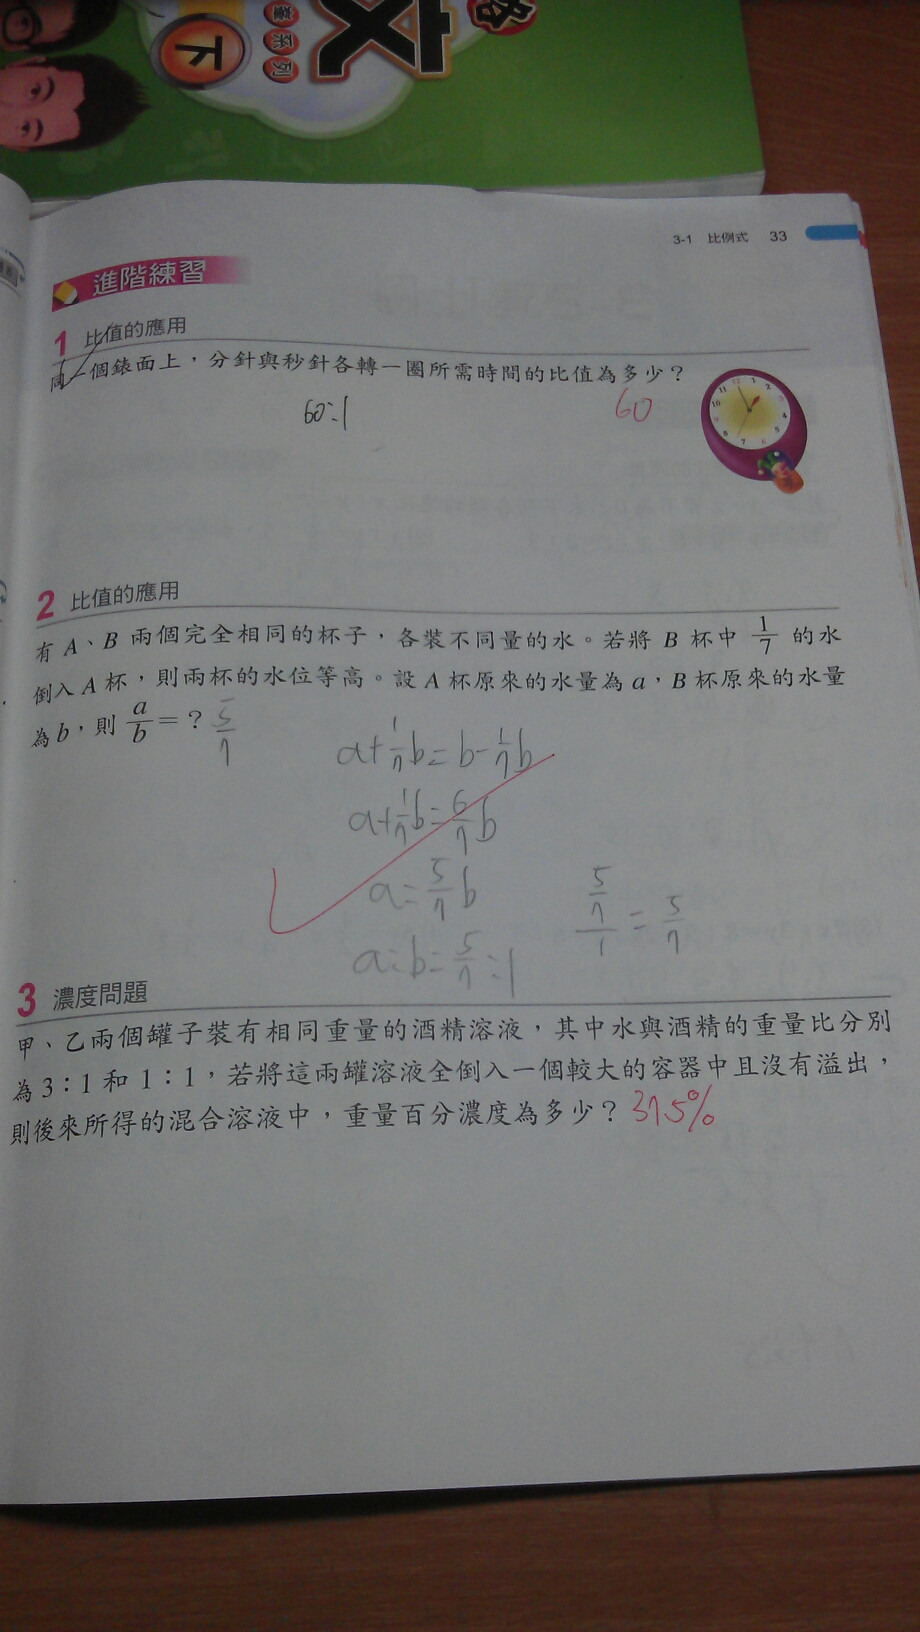 文
下
系列
3-1 比例式 33
進階練習
1 比值的應用
同一個錶面上，分針與秒針各轉一圈所需時間的比值為多少？
60:1
60
2 比值的應用
有 A、B 兩個完全相同的杯子，各裝不同量的水。若將 B 杯中 1/7 的水
倒入 A 杯，則兩杯的水位等高。設 A 杯原來的水量為 a，B 杯原來的水量
為 b，則 a/b = ？ 5/7
a+1/7b=b-1/7b
a+1/7b=6/7b
a=5/7b
a:b=5/7:1
5/7/1=5/7
3 濃度問題
甲、乙兩個罐子裝有相同重量的酒精溶液，其中水與酒精的重量比分別
為 3：1 和 1：1，若將這兩罐溶液全倒入一個較大的容器中且沒有溢出，
則後來所得的混合溶液中，重量百分濃度為多少？ 37.5%